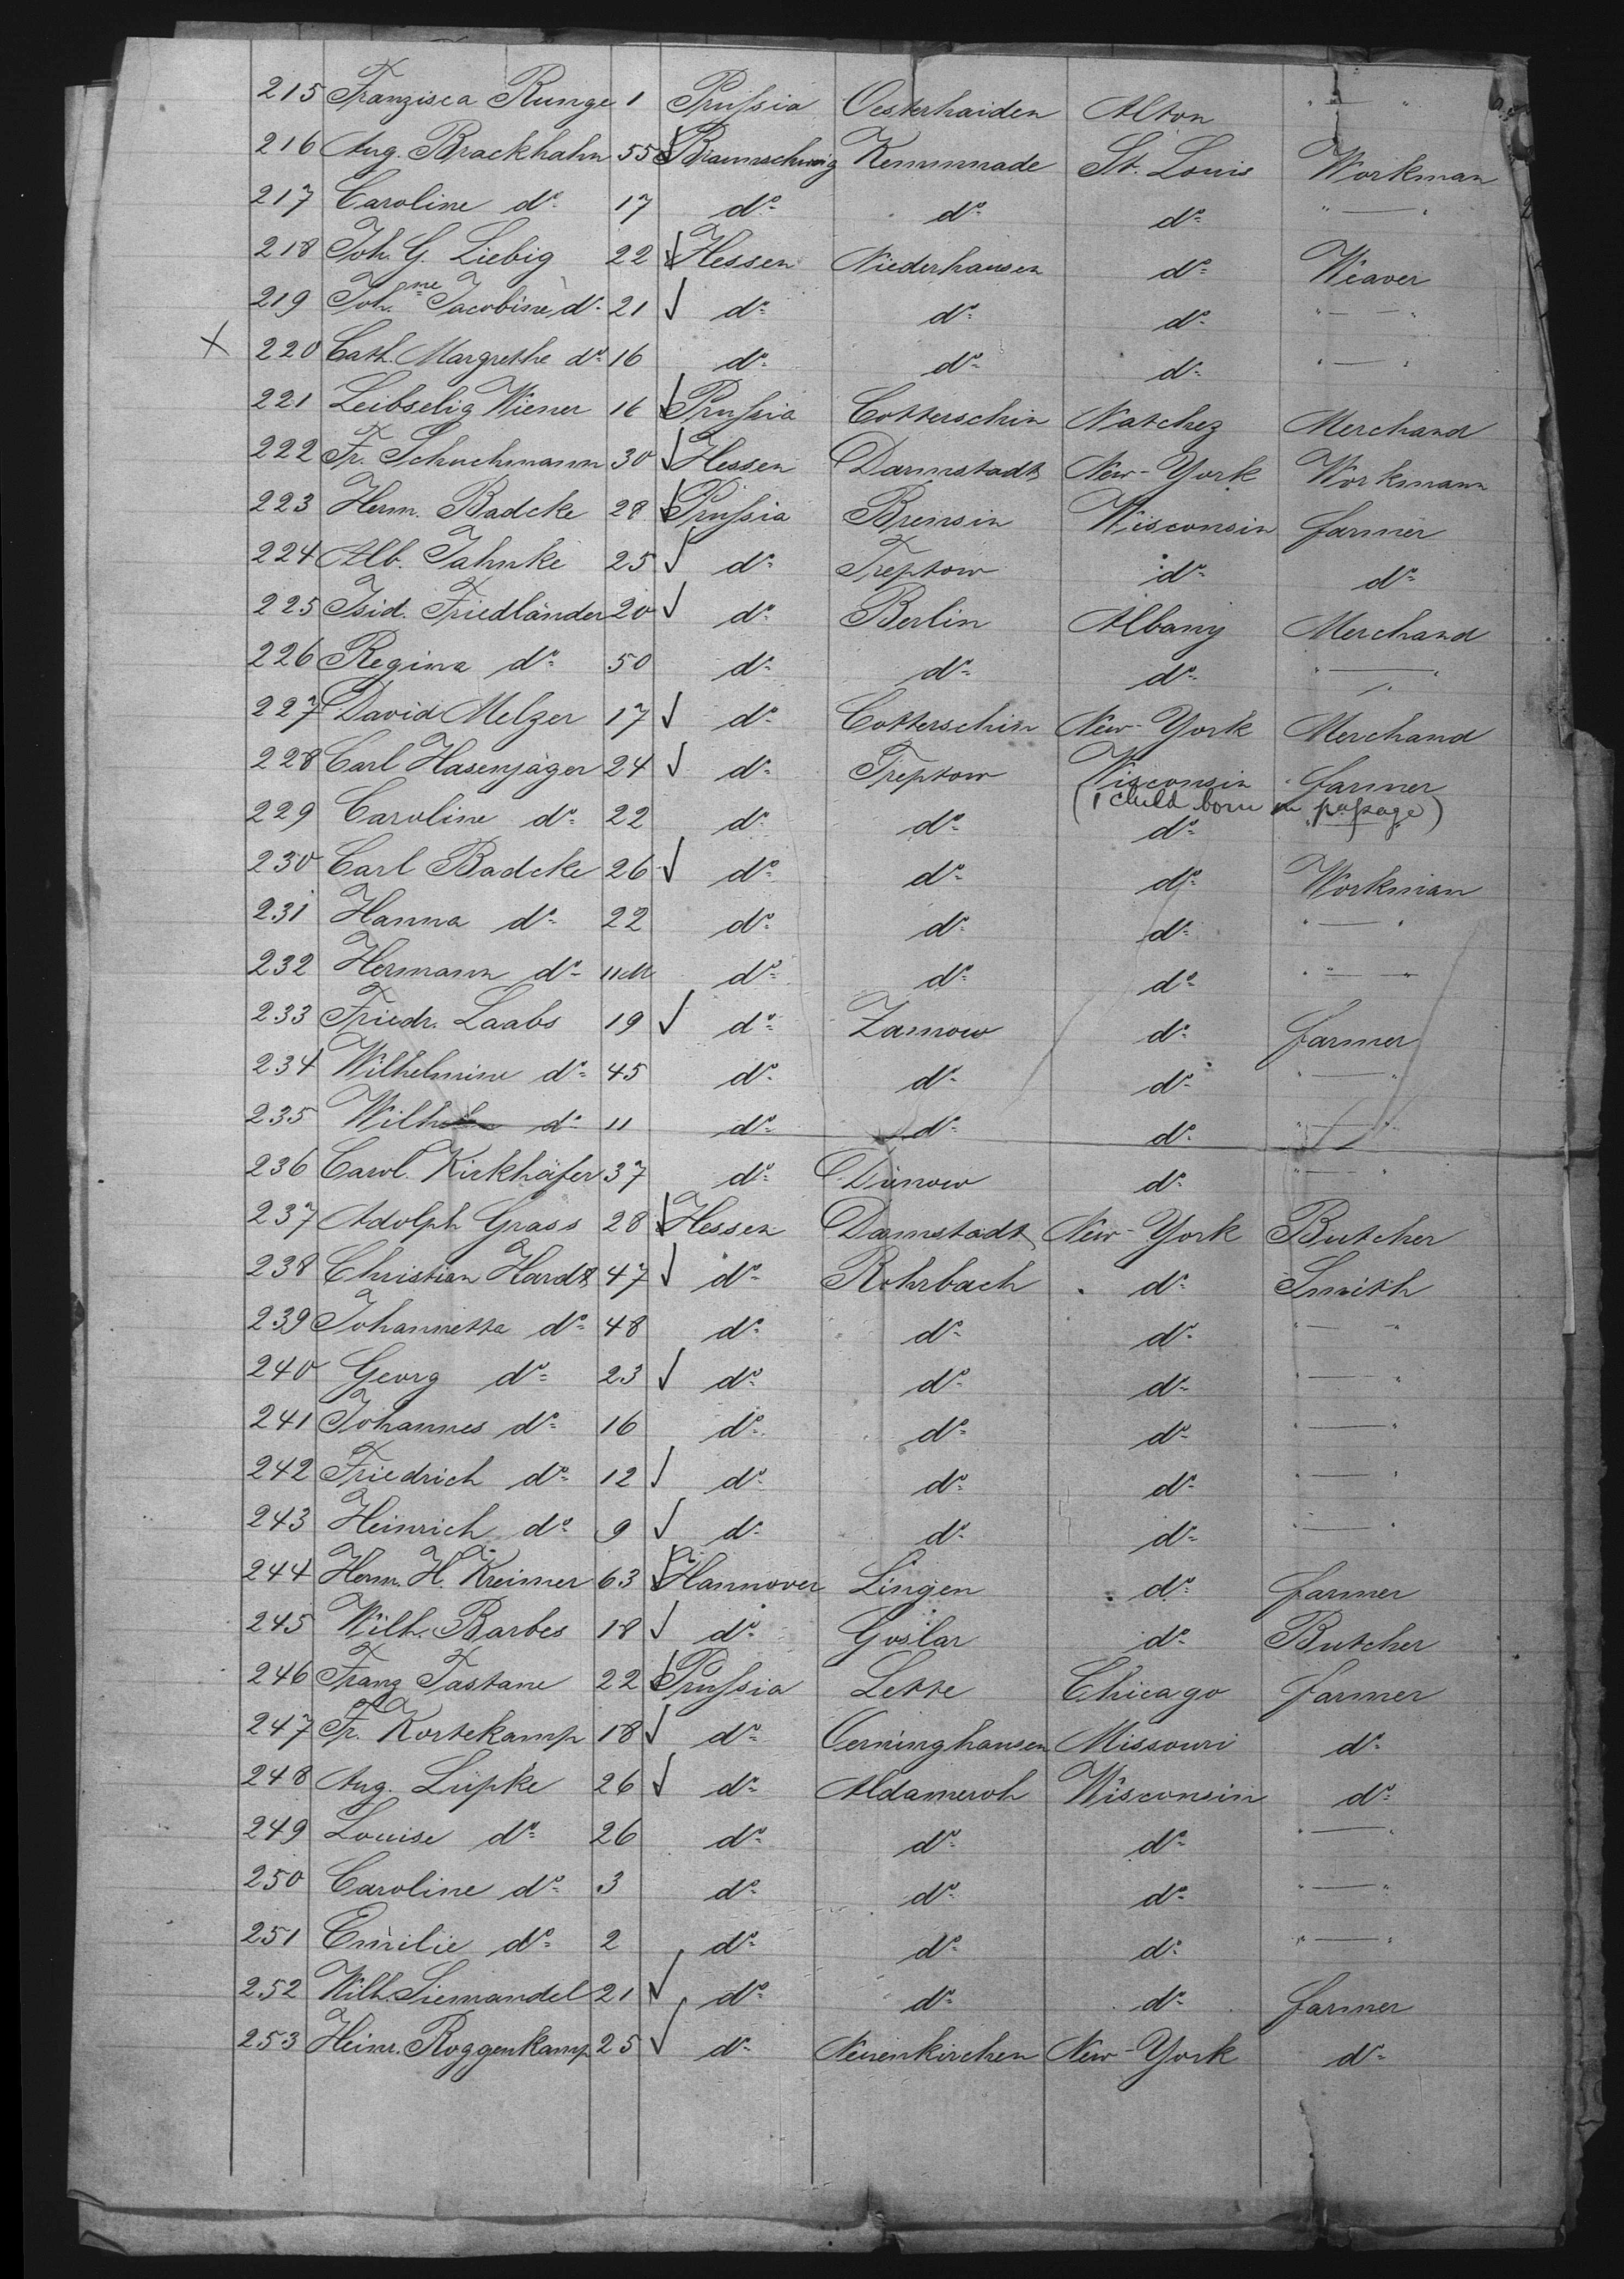 215 Franzisca Runge 1 Prussia Oesterhaiden Alton " — "
216 Aug. Brackhahn 55 Braunschweig Kemmnade St. Louis Workman
217 Caroline do 17 do do do " — "
218 Joh. G. Liebig 22 Hessen Niederhausen do Weaver
219 Joh.me Jacobine do 21 do do do " — "
X 220 Cath. Margrethe do 16 do do do " — "
221 Leibselig Wiener 16 Prussia Cotterschin Natchez Merchand
222 Fr. Schuchmann 30 Hessen Darmstadt New-York Workmann
223 Herm. Badcke 28 Prussia Bremsin Wisconsin farmer
224 Alb. Jahnke 25 do Treptow do do
225 Isid. Friedländer 20 do Berlin Albany Merchand
226 Regina do 50 do do do " — "
227 David Melzer 17 do Cotterschin New-York Merchand
228 Carl Hasenjäger 24 do Treptow Wisconsin farmer
(1 child born on passage)
229 Caroline do 22 do do do " — "
230 Carl Badcke 26 do do do Workman
231 Hanna do 22 do do do " — "
232 Hermann do 11M do do do " — "
233 Friedr. Laabs 19 do Zamow do farmer
234 Wilhelmine do 45 do do do " — "
235 Wilh do 11 do do do " — "
236 Carol. Kirkhäfer 37 do Dünow do " — "
237 Adolph Grass 28 Hessen Darmstadt New-York Butcher
238 Christian Hardt 47 do Rohrbach do Smith
239 Johannetta do 48 do do do " — "
240 Georg do 23 do do do " — "
241 Johannes do 16 do do do " — "
242 Friedrich do 12 do do do " — "
243 Heinrich do 9 do do do " — "
244 Herm. H. Kreimer 63 Hannover Lingen do farmer
245 Wilh. Barbes 18 do Goslar do Butcher
246 Franz Tastane 22 Prussia Lette Chicago farmer
247 Fr. Kortekamp 18 do Oerninghausen Missouri do
248 Aug. Lüpke 26 do Aldameroh Wisconsin do
249 Louise do 26 do do do " — "
250 Caroline do 3 do do do " — "
251 Emilie do 2 do do do " — "
252 Wilh. Siemandel 21 do do do farmer
253 Heinr. Roggenkamp 25 do Neuenkirchen New-York do